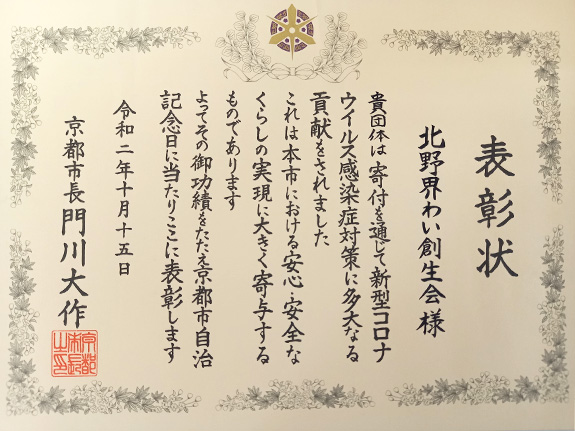 表彰状
北野界わい創生会様
貴団体は寄付を通じて新型コロナ
ウイルス感染症対策に多大なる
貢献をされました
これは本市における安心・安全な
くらしの実現に大きく寄与する
ものであります
よってその御功績をたたえ京都市自治
記念日に当たりここに表彰します
令和二年十月十五日
京都市長 門川大作
京都市長之印